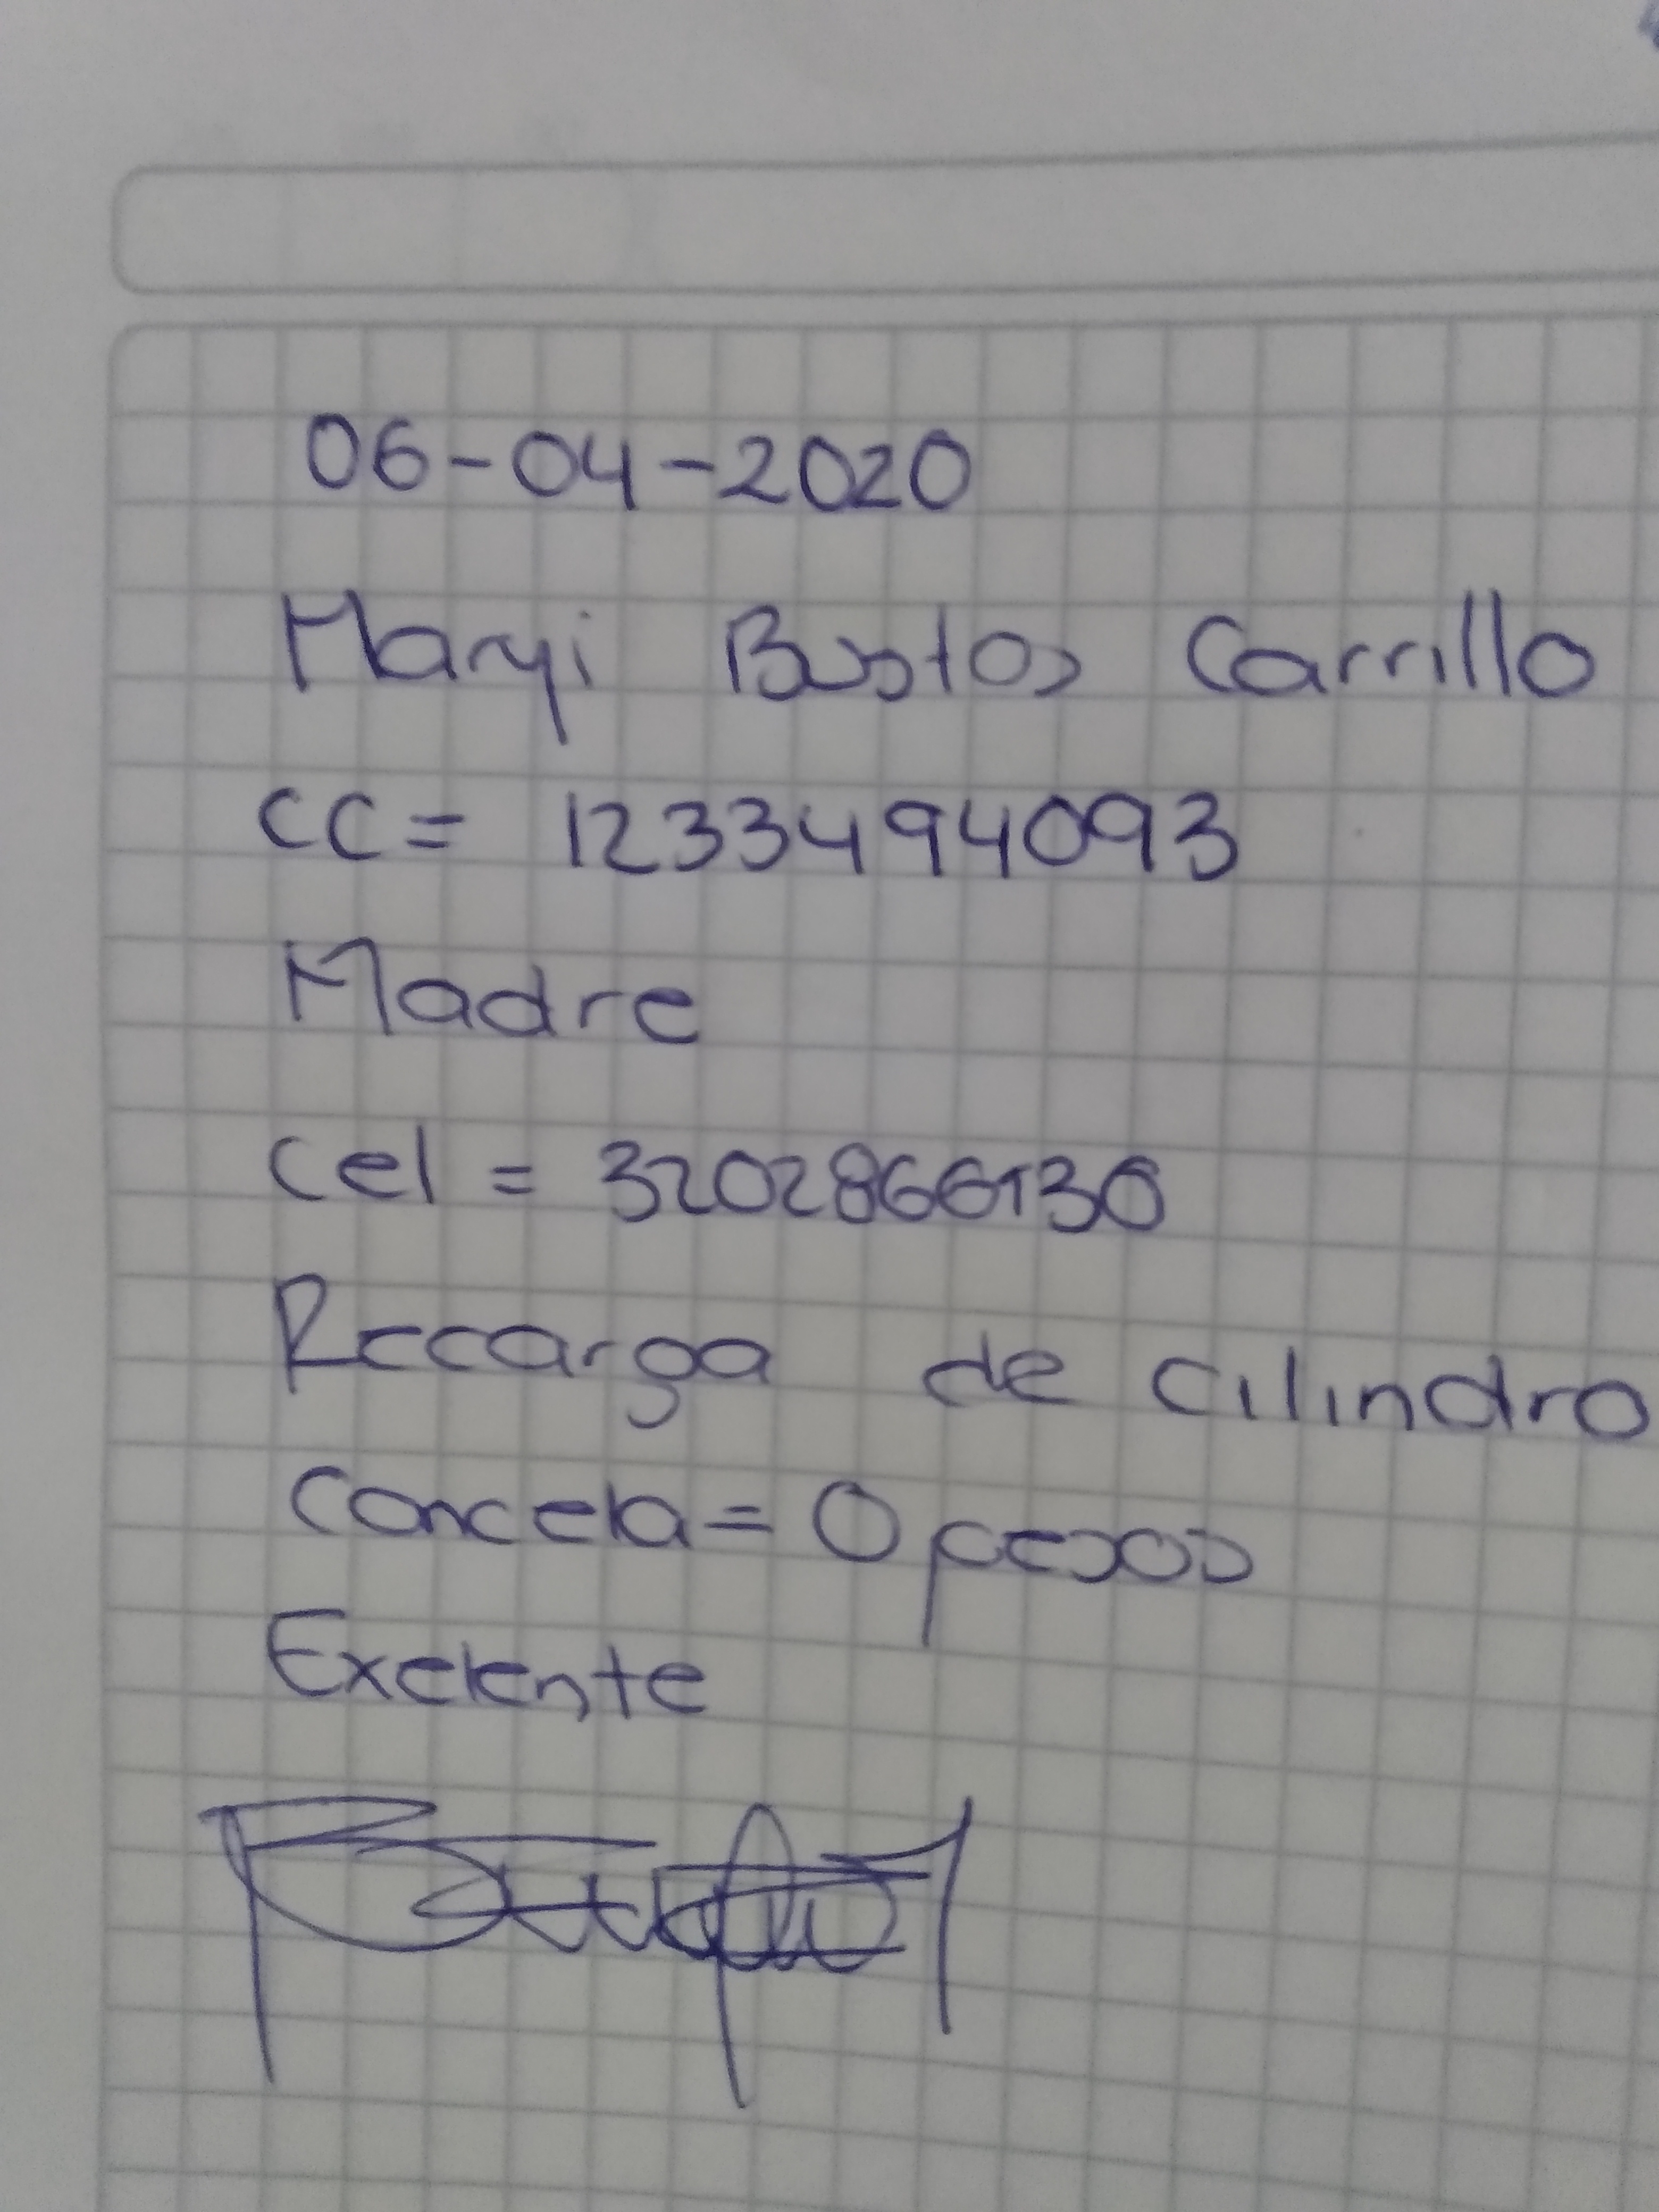 06-04-2020
Maryi Bustos Carrillo
CC= 1233494093
Madre
Cel = 3202866130
Recarga de cilindro
Cancela= 0 pesos
Exelente